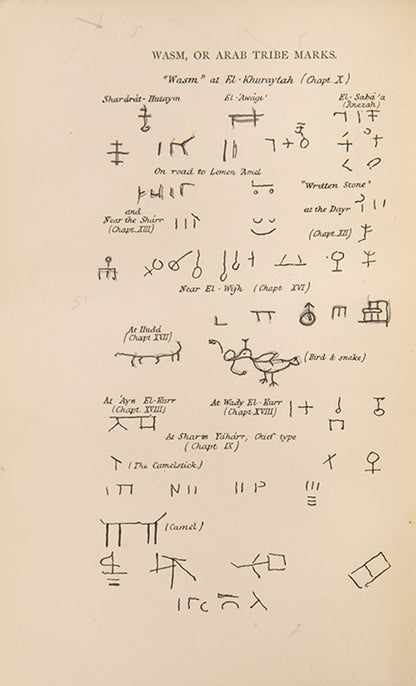 WASM, OR ARAB TRIBE MARKS.
"Wasm" at El-Khuraytah (Chapt. X)
Sharárát-Hutaym El-'Awági' El-Sabá'a
(Anezah)
On road to Lemen 'Amil
"Written Stone"
and at the Dayr
Near the Shárr (Chapt. XII)
(Chapt. XIII)
Near El-Wijh (Chapt. XVI)
At Hudd
(Chapt. XVII)
(Bird & snake)
At 'Ayn El-Kurr At Wady El-Kurr
(Chapt. XVIII) (Chapt. XVIII)
At Sharm Yáhárr, Chief type
(Chapt. IX)
(The Camelstick.)
(Camel)